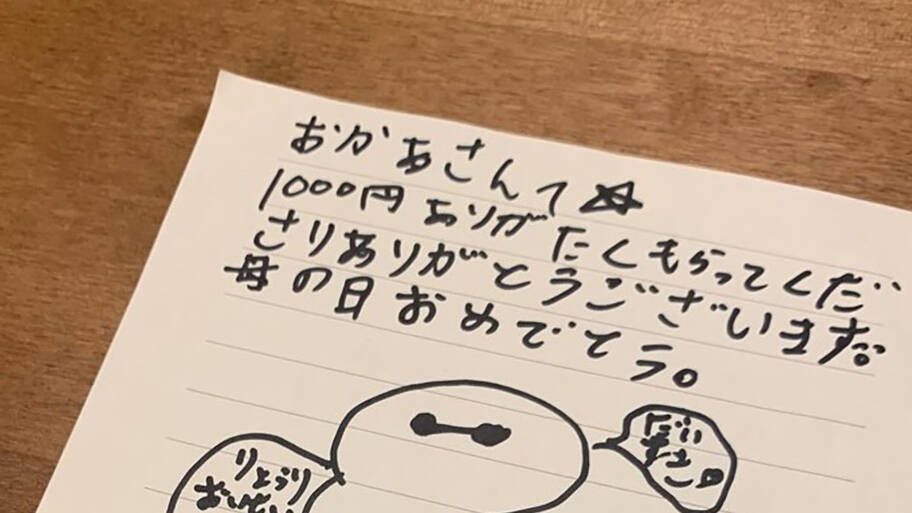 おかあさんへ
1000円ありがたくもらってくだ
さりありがとうございます。
母の日おめでとう。
だい
すき
りょうり
おいしい